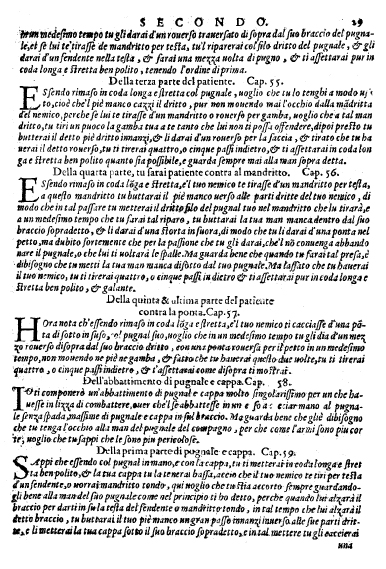 SECONDO. 29
in un medesimo tempo tu gli darai d'un rouerso trauersato di sopra dal suo braccio del pugna-
le, et se lui te tirasse de mandritto per testa, tu'l riparerai col filo dritto del pugnale, & gli
darai d'un fendente nella testa, & sarai una mezza uolta di pugno, & ti assettarai pur in
coda longa e stretta ben polito, tenendo l'ordine di prima.
Della terza parte del patiente. Cap. 55.
ESsendo rimaso in coda longa e stretta col pugnale, uoglio che tu lo tenghi a modo us-
to, cioè che'l piè manco cazzi il dritto, pur non mouendo mai l'occhio dalla mādritta
del nemico, perche se lui te tirasse d'un mandritto o rouerso per gamba, uoglio che a tal man
dritto, tu tiri un puoco la gamba tua a te tanto che lui non ti possa offendere, dipoi presto tu
butterai il detto piè dritto innanzi, & li darai d'un rouerso per la faccia, & tirato che tu ha
uerai il detto rouerso, tu ti tirerai quattro, o cinque passi indietro, & ti assettarai in coda lon
ga e stretta ben polito quanto sia possibile, e guarda sempre mai alla man sopra detta.
Della quarta parte, tu sarai patiente contra al mandritto. Cap. 56.
ESsendo rimaso in coda lōga e stretta, e'l tuo nemico te tirasse d'un mandritto per testa,
a questo mandritto tu buttarai il piè manco uerso alle parti diritte del tuo nemico, di
modo che in tal passare tu metterai il dritto filo del pugnal tuo nel mandritto che tu tirarà, e
a un medesimo tempo che tu farai tal riparo, tu buttarai la tua man manca dentro dal suo
braccio sopradetto, & li darai d'una storta in fuora, di modo che tu li darai d'una ponta nel
petto, ma dubito fortemente che per la passione che tu gli darai, che'l nō conuenga abbando
nare il pugnale, o che lui ti uoltarà le spalle. Ma guarda bene che quando tu farai tal presa, è
dibisogno che tu metti la tua man manca disotto dal tuo pugnale. Ma lassato che tu hauerai
il tuo nemico, tu ti tirerai quatro, o cinque passi in dietro & ti assettarai pur in coda longa e
stretta ben polito, & galante.
Della quinta & ultima parte del patiente
contra la ponta. Cap. 57.
HOra nota ch'essendo rimaso in coda lōga e stretta, e'l tuo nemico ti cacciasse d'una pō
ta di sotto in suso, o pugnal suo, uoglio che in un medesimo tempo tu gli dia d'un mez
zo rouerso disopra dal suo braccio dritto, con una ponta rouersa per il petto in un medesimo
tempo, non mouendo ne piè ne gamba, & fatto che tu hauerai questo due uolte, tu ti tirerai
quattro, o cinque passi indietro, & t'assettarai come disopra ti mostrai.
Dell'abbattimento di pugnale e cappa. Cap. 58.
IO ti componerò un'abbattimento di pugnale e cappa molto singolarissimo per un che ha-
uesse in lizza di combattere,
senza spada, massime di pugnale e cappa in sul braccio. Ma guarda bene che gliè dibisogno
che tu tenga l'occhio alla man del pugnale del compagno, per che come l'armi sono piu cor
te, uoglio che tu sappi che le sono piu pericolose.
Della prima parte di pugnale e cappa. Cap. 59.
SAppi che essendo col pugnal in mano, e con la cappa, tu ti metterai in coda longa e stret
ta ben polito, & la tua cappa tu la tenerai bassa, accio che il tuo nemico te tiri per testa
d'un fendente, o uorrai mandritto tondo, qui uoglio che tu stia accorto sempre guardando-
gli bene alla man del suo pugnale come nel principio ti ho detto, perche quando lui alzarà il
braccio per darti in su la testa del fendente o mandritto tondo, in tal tempo che lui alzarà il
detto braccio, tu buttarai il tuo piè manco un gran passo innanzi inuerso alle sue parti drit-
te, e li metterai la tua cappa sotto il suo braccio sopradetto, e in tal mettere tu gli caccierai
una